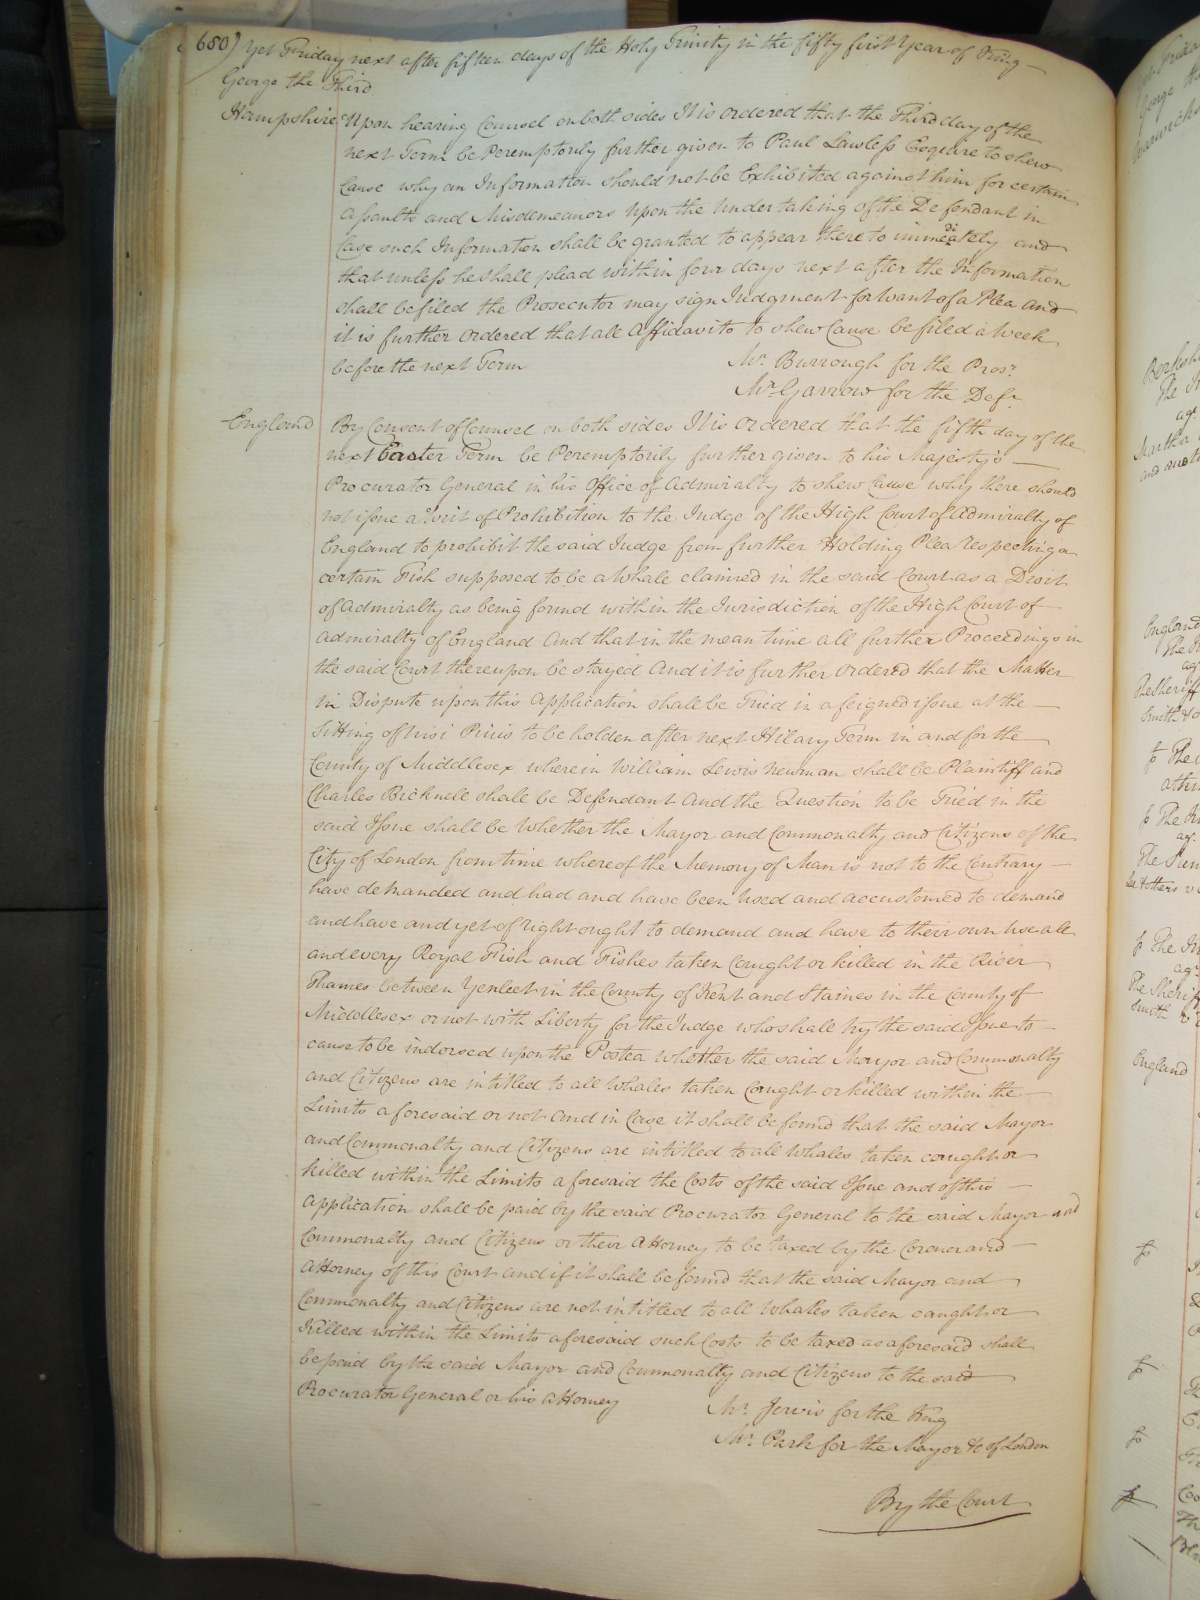 650) Yet Friday next after fifteen days of the Holy Trinity in the fifty first Year of King
George the Third
Hampshire Upon hearing Counsel on both sides It is ordered that the Third day of the
next Term be Peremptorily further given to Paul Lawless Esquire to shew
Cause why an Information should not be Exhibited against him for certain
Assaults and Misdemeanors Upon the Undertaking of the Defendant in
Case such Information shall be granted to appear thereto immediately and
that unless he shall plead within four days next after the Information
shall be filed the Prosecutor may sign Judgment for want of a Plea And
it is further ordered that all Affidavits to shew Cause be filed a week
before the next Term
Mr. Burrough for the Prosr.
Mr. Garrow for the Deft.
England By Consent of Counsel on both sides It is ordered that the fifth day of the
next Easter Term be Peremptorily further given to his Majesty's
Procurator General in his Office of Admiralty to shew Cause why there should
not issue a Writ of Prohibition to the Judge of the High Court of Admiralty of
England to prohibit the said Judge from further Holding Plea respecting a
certain Fish supposed to be a Whale claimed in the said Court as a Droit
of Admiralty as being found within the Jurisdiction of the High Court of
Admiralty of England And that in the mean time all further Proceedings in
the said Court thereupon be stayed And it is further ordered that the Matter
in Dispute upon this Application shall be Tried in a feigned issue at the
Sitting of Nisi Prius to be holden after next Hilary Term in and for the
County of Middlesex wherein William Lewis Newman shall be Plaintiff and
Charles Bicknell shall be Defendant And the Question to be Tried in the
said Issue shall be Whether the Mayor and Commonalty and Citizens of the
City of London from time whereof the Memory of Man is not to the Contrary
have demanded and had and have been Used and accustomed to demand
and have and yet of right ought to demand and have to their own Use all
and every Royal Fish and Fishes taken Caught or killed in the River
Thames between Yenleet in the County of Kent and Staines in the County of
Middlesex or not with Liberty for the Judge who shall try the said Issue to
cause to be indorsed upon the Postea whether the said Mayor and Commonalty
and Citizens are intitled to all Whales taken Caught or killed within the
Limits aforesaid or not And in Case it shall be found that the said Mayor
and Commonalty and Citizens are intitled to all Whales taken caught or
killed within the Limits aforesaid the Costs of the said Issue and of this
Application shall be paid by the said Procurator General to the said Mayor and
Commonalty and Citizens or their Attorney to be taxed by the Coroner and
Attorney of this Court and if it shall be found that the said Mayor and
Commonalty and Citizens are not intitled to all Whales taken caught or
Killed within the Limits aforesaid such Costs to be taxed as aforesaid shall
be paid by the said Mayor and Commonalty and Citizens to the said
Procurator General or his Attorney
Mr. Jervis for the King
Mr. Park for the Mayor &c of London
By the Court